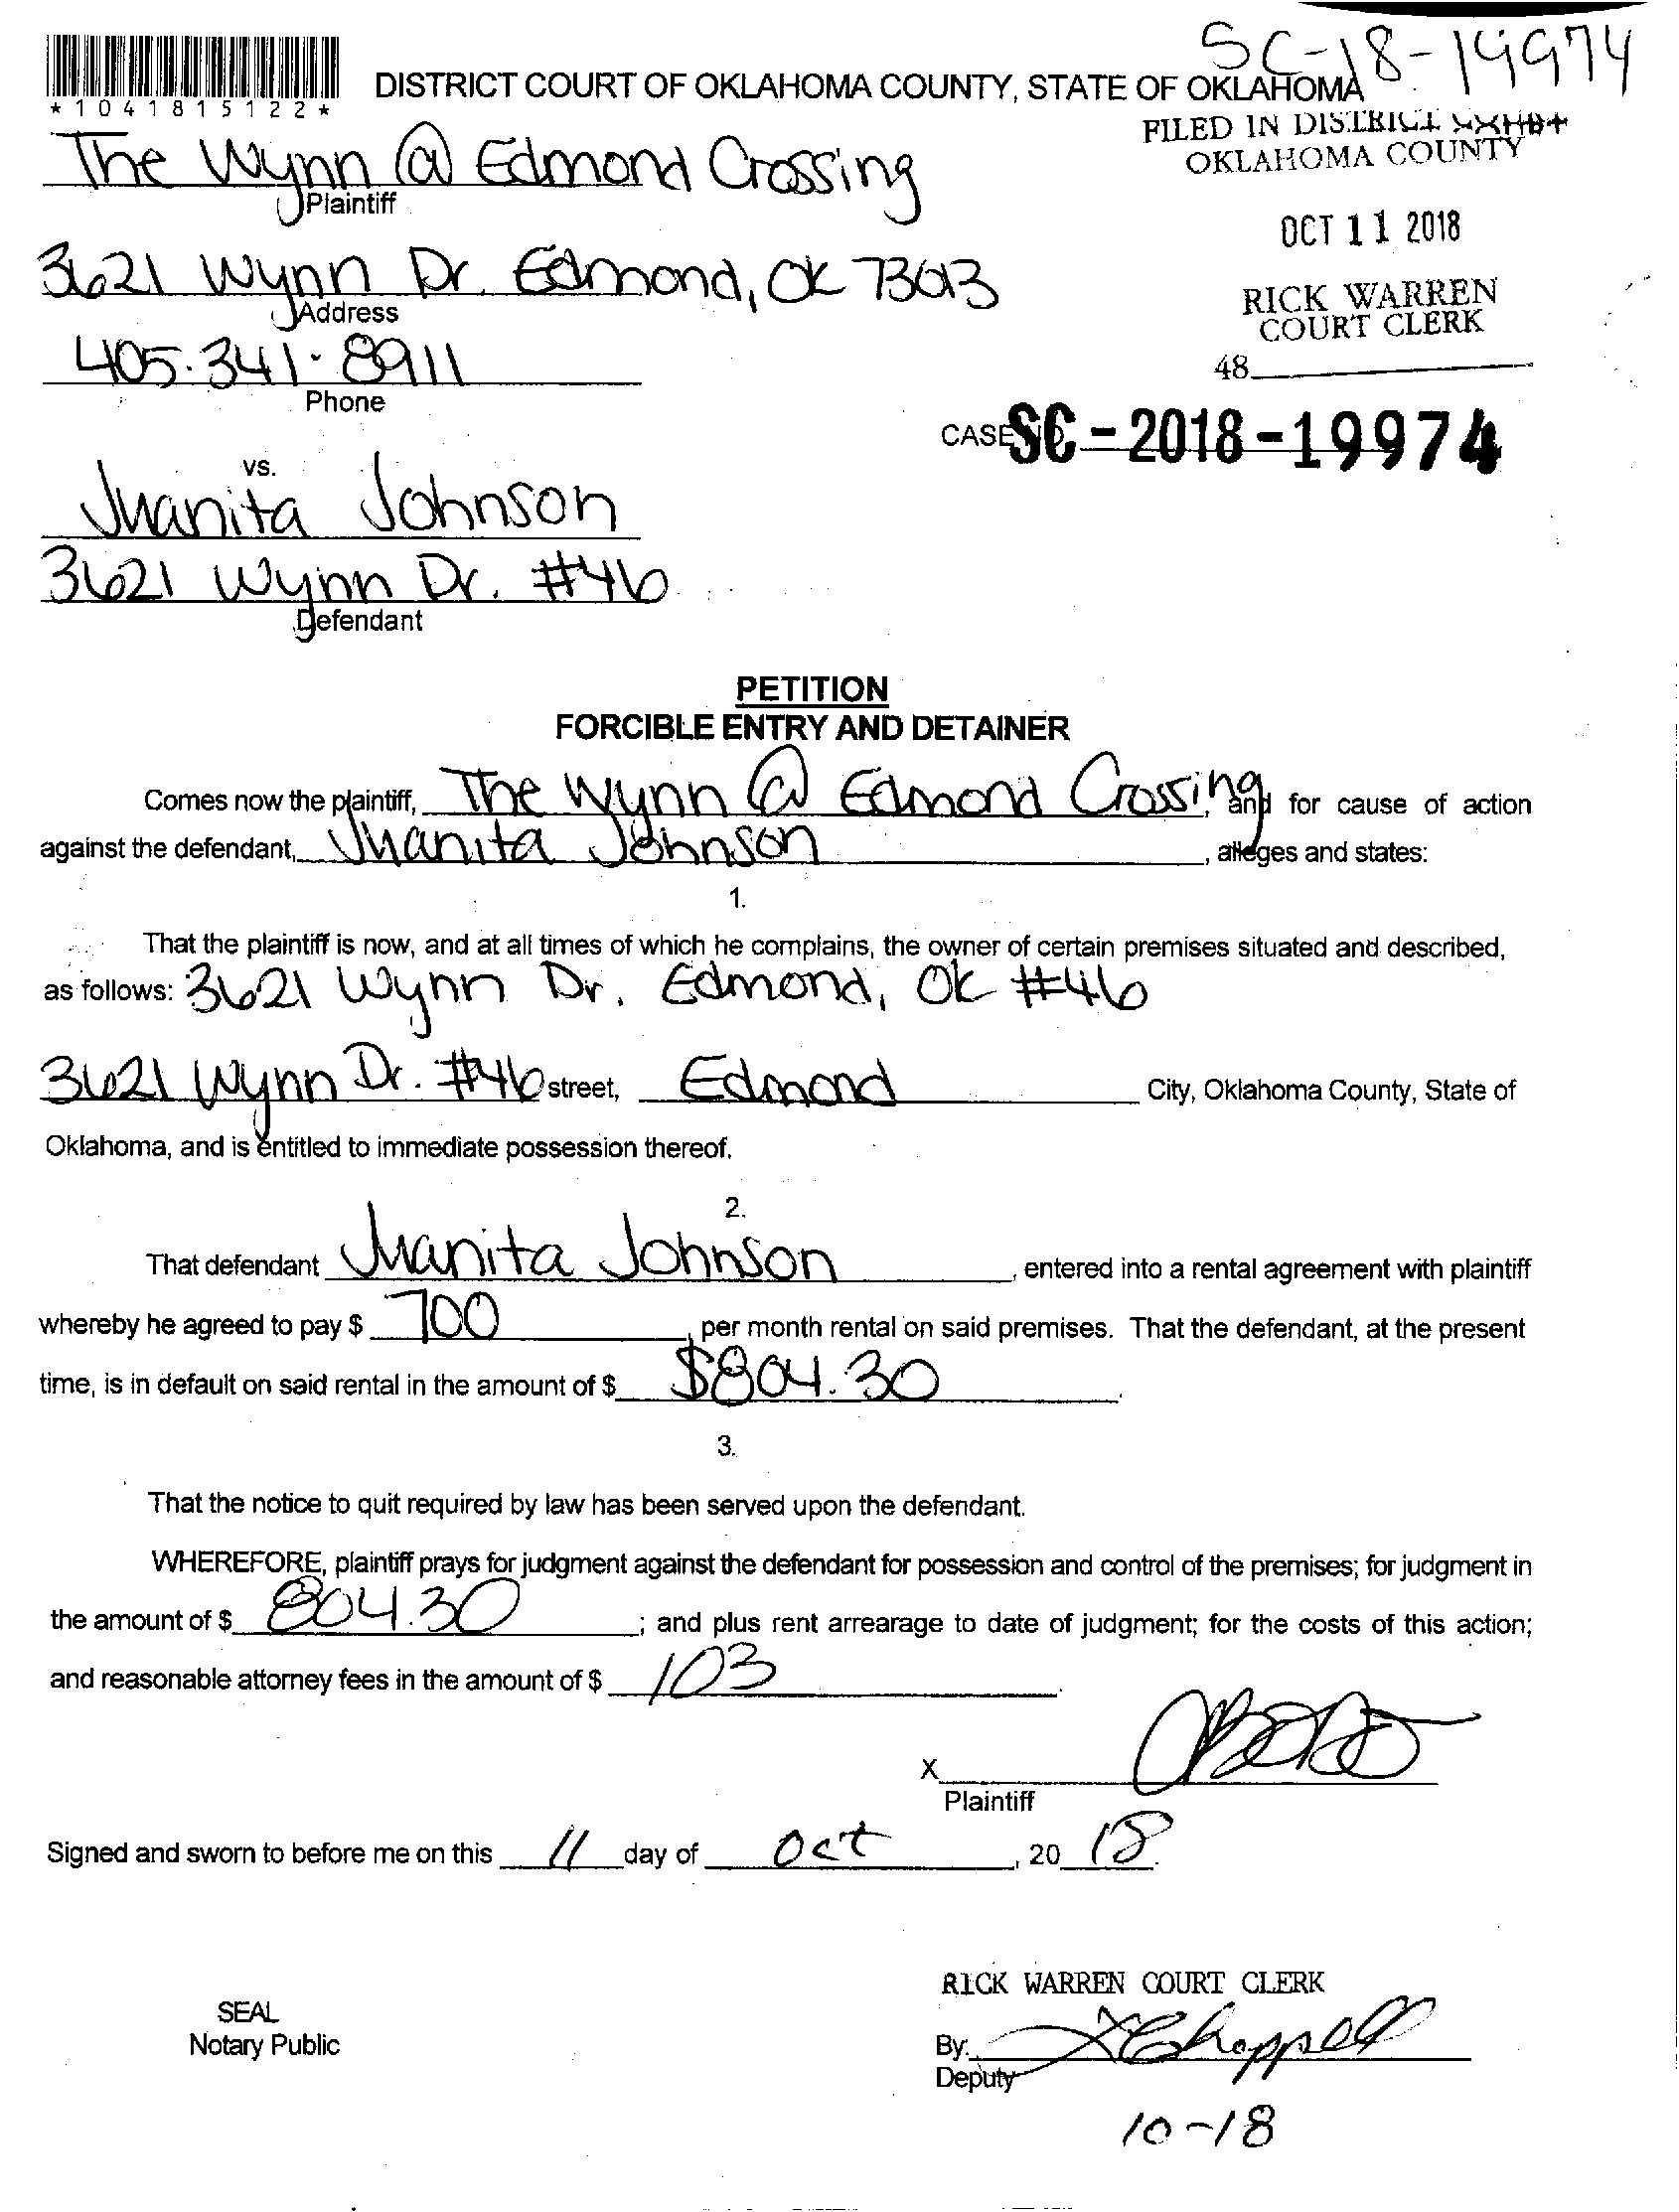 SC-18-19974
*1041815122*
DISTRICT COURT OF OKLAHOMA COUNTY, STATE OF OKLAHOMA
FILED IN DISTRICT
OKLAHOMA COUNTY
The Wynn @ Edmond Crossing
Plaintiff
OCT 11 2018
3621 Wynn Dr. Edmond, OK 73013
Address
RICK WARREN
COURT CLERK
405.341.8911
Phone
48
CASE NO. SC-2018-19974
vs.
Juanita Johnson
3621 Wynn Dr. #46
Defendant
PETITION
FORCIBLE ENTRY AND DETAINER
Comes now the plaintiff, The Wynn @ Edmond Crossing, and for cause of action
against the defendant, Juanita Johnson, alleges and states:
1.
That the plaintiff is now, and at all times of which he complains, the owner of certain premises situated and described,
as follows: 3621 Wynn Dr. Edmond, OK #46
3621 Wynn Dr. #46 street, Edmond City, Oklahoma County, State of
Oklahoma, and is entitled to immediate possession thereof.
2.
That defendant Juanita Johnson, entered into a rental agreement with plaintiff
whereby he agreed to pay $ 700, per month rental on said premises. That the defendant, at the present
time, is in default on said rental in the amount of $ $804.30.
3.
That the notice to quit required by law has been served upon the defendant.
WHEREFORE, plaintiff prays for judgment against the defendant for possession and control of the premises; for judgment in
the amount of $ 804.30; and plus rent arrearage to date of judgment; for the costs of this action;
and reasonable attorney fees in the amount of $ 103.
X
Plaintiff
Signed and sworn to before me on this 11 day of Oct, 20 18.
RICK WARREN COURT CLERK
SEAL
Notary Public
By: Chappell
Deputy
10-18